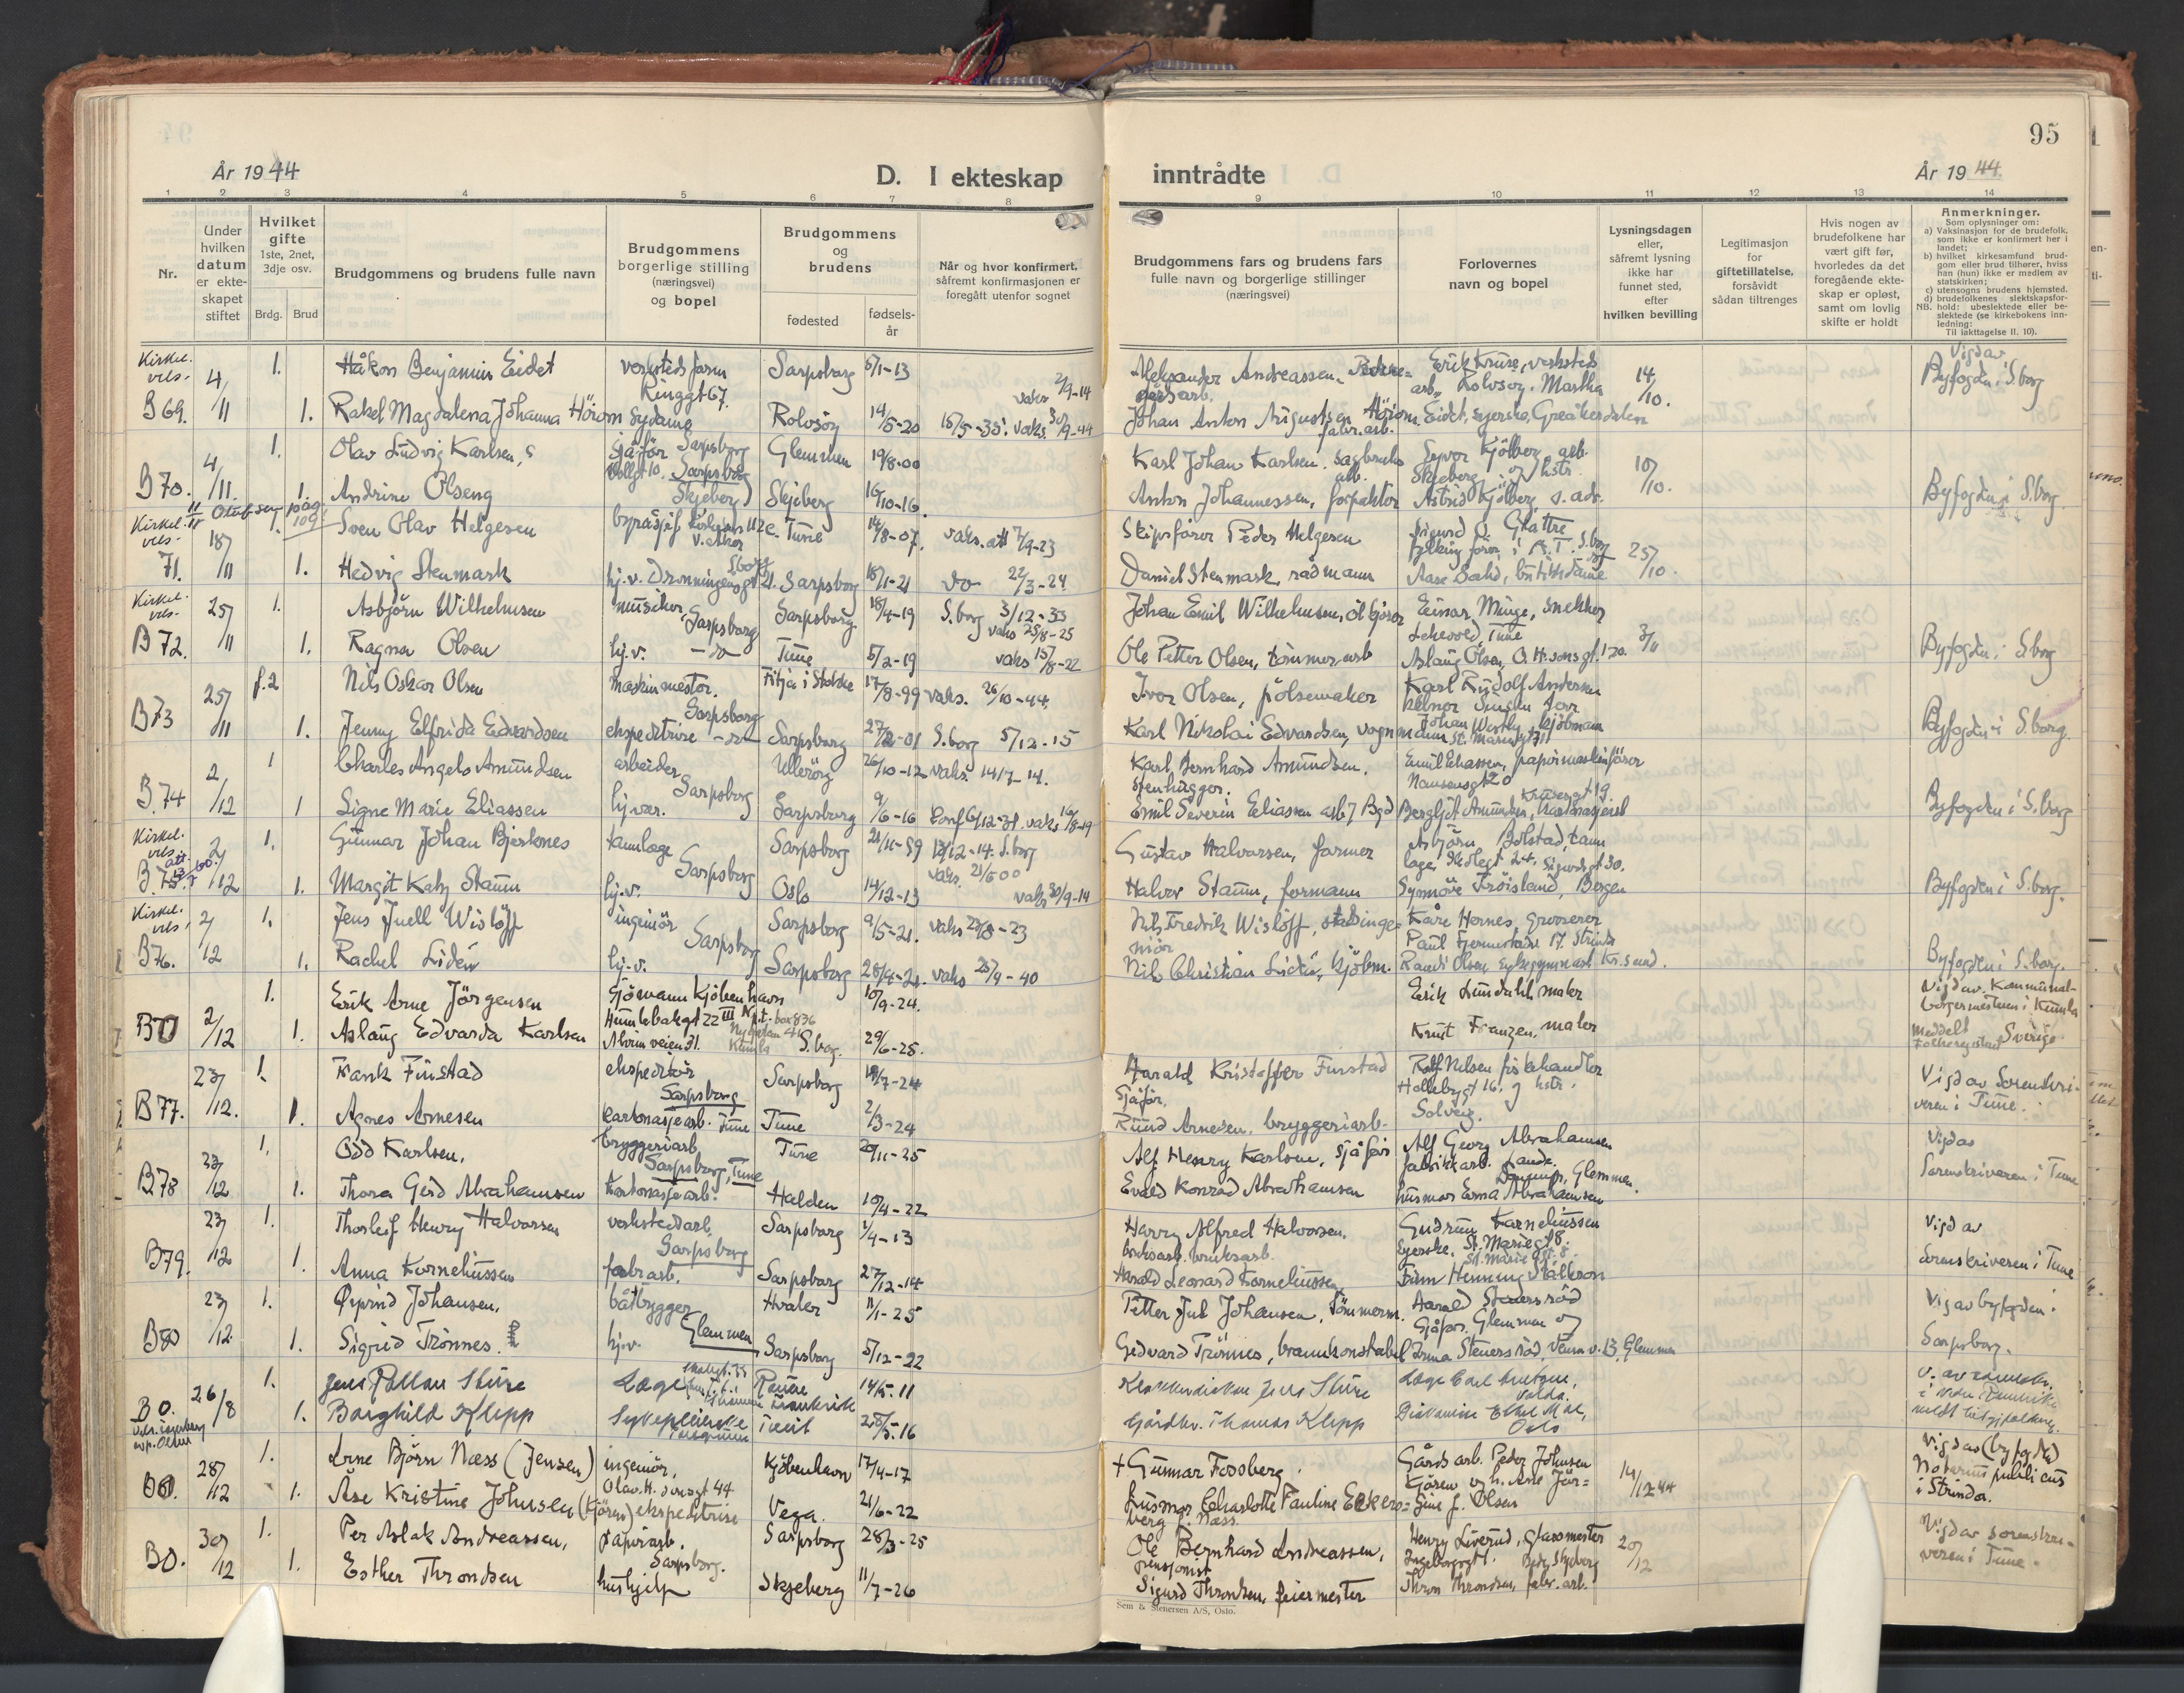 95
År 1944
D. I ekteskap
inntrådte
År 1944.
1 2 3 4 5 6 7 8
9 10 11 12 13 14
Nr.
Under hvilken datum er ekteskapet stiftet
Hvilket gifte
1ste, 2net, 3dje osv.
Brdg. Brud
Brudgommens og brudens fulle navn
Brudgommens borgerlige stilling (næringsvei) og bopel
Brudgommens og brudens
fødested
fødselsår
Når og hvor konfirmert, såfremt konfirmasjonen er foregått utenfor sognet
Brudgommens fars og brudens fars fulle navn og borgerlige stillinger (næringsvei)
Forlovernes navn og bopel
Lysningsdagen eller, såfremt lysning ikke har funnet sted, efter hvilken bevilling
Legitimasjon for giftetillatelse, forsåvidt sådan tiltrenges
Hvis nogen av brudefolkene har vært gift før, hvorledes da det foregående ekteskap er opløst, samt om lovlig skifte er holdt
Anmerkninger.
Som oplysninger om:
a) Vaksinasjon for de brudefolk, som ikke er konfirmert her i landet;
b) hvilket kirkesamfund brudgom eller brud tilhører, hviss han (hun) ikke er medlem av statskirken;
c) utensogns brudens hjemsted.
d) brudefolkenes slektskapsforhold: ubeslektede eller beslektede (se kirkebokens innledning:
NB.
Til iakttagelse II. 10).
Kirkel. vels. 4/11 1. Håkon Benjamin Eidet verksteds form Ringgt 67. Sarpsborg 5/1-13 vaks 2/9-14
Alexander Andreassen Erik Kruse, verksteds arb. Rolvsøy. Martha 14/10. Vigd av Byfogden i S.borg
B 69. 1. Rakel Magdalena Johanna Høiom Sydame Rolvsøy 14/5-20 18/5-35. vaks. 30/9-44
Johan Anton Augustsen Høiom fabr. arb. Eidet, syerske, Greåkerdalen
4/11. 1. Olav Ludvig Karlsen, Sjåfør Sarpsborg Glemmen 19/8-00
Karl Johan Karlsen. sagbruks arb. Syver Kjølberg arb. Skjeberg og hstr. 10/10.
B 70. 1. Andrine Olseng Skjeberg Skjeberg 16/10-16.
Anton Johannessen, forpaktor Astrid Kjølberg s. adr. Byfogden i S.borg
Kirkel. vels. 18/11 1. Sven Olav Helgesen Tune 14/8-07. vaks. att 7/9-23
Skipsfører Peder Helgesen Sigurd O. Glattre 25/10.
71. 1. Hedvig Stenmark hj.v. Dronningensgt 21. Sarpsborg 18/1-21 do 22/3-24
Daniel Stenmark, rådmann
Kirkel. vels. 25/11 1. Asbjørn Wilhelmsen musiker Sarpsborg Sarpsborg 18/4-19 S.borg 3/12-33 vaks 25/8-25
Johan Emil Wilhelmsen, ölkjører Einar Minge, snekker Tune 3/11
B 72. 1. Ragna Olsen hj.v. -do- Tune 5/2-19 vaks 15/8-22
Ole Petter Olsen, tømmerarb Aslaug Olsen, O.H.sons gt. 120. Byfogden i S.borg
25/11 f.2 Nils Oskar Olsen maskinmester. Sarpsborg 17/8-99 vaks. 26/10-44
Ivar Olsen, pølsemaker Karl Rudolf Andersen
B 73 1. Jenny Elfrida Edvardsen ekspeditrise -do- Sarpsborg 27/2-01 S.borg 5/12-15
Karl Nikolai Edvardsen, vognmann Johan Westby, kjøbmann Byfogden i S.borg.
2/12 1 Charles Angelo Amundsen arbeider Sarpsborg Ullerøy 26/10-12 vaks. 14/7-14.
Karl Bernhard Amundsen. Stenhugger. Emil Eliassen, papirmaskinfører Nansensgt 20
B 74 1 Signe Marie Eliassen hj.vær. Sarpsborg 9/6-16 Conf 6/12-31. vaks 16/8-19
Emil Severin Eliassen arb. Bergljot Amundsen, Byfogden i S.borg
Kirkel. vels. 2/12 1. Gunnar Johan Bjerknes tannlæge Sarpsborg Sarpsborg 21/11-99 13/12-14. S.borg vaks. 21/5 00
Gustav Halvorsen, farmer Asbjørn Bolstad, tannlæge
B. 75. 1. Margit Katy Stamm hj.v. Oslo 14/12-13 vaks 30/9-14
Halvor Stamm, formann Synnøve Frøisland, Bergen Byfogden i S.borg.
Kirkel. vels. 2/12 1. Jens Juell Wisløff ingeniør Sarpsborg Sarpsborg 9/5-21. vaks 28/8-23
Nils Fredrik Wisløff, stadsingeniør Kåre Hernes, grosserer
B 76. 1. Rachel Lidén hj.v. Sarpsborg 28/4-21. vaks 25/9-40
Nils Christian Lidén, kjøbm. Randi Olsen, Kr.sund. Byfogden i S.borg.
2/12 1. Erik Arne Jørgensen Sjømann Kjøbenhavn Humlebakgt 22 III 10/9-24.
Erik Lundahl, maler Vigd av Kommunalborgermesteren i Kumla Sverige.
B0 1. Aslaug Edvarda Karlsen Alvimveien 31. S.borg. 29/6-25.
Knut Franzen, maler
23/12. 1. Frank Finstad ekspeditør Sarpsborg Sarpsborg 19/7-24
Harald Kristoffer Finstad Sjåfør. Rolf Nilsen fiskehandler Vigd av Sorenskriveren i Tune.
B 77. 1. Agnes Arnesen Kartonasjearb. Tune Tune 2/3-24
Ruud Arnesen. bryggeriarb. Solveig.
23/12 1. Odd Karlsen. bryggeriarb. Sarpsborg, Tune Tune 20/11-25
Alf Henry Karlsen, sjåfør Alf Georg Abrahamsen fabrikkarb. Vigd av Sorenskriveren i Tune
B 78 1. Thora Gerd Abrahamsen Kartonasjearb. Halden 10/4-22
Evald Konrad Abrahamsen husmor Erna Abrahamsen Glemmen.
23/12 1. Thorleif Henry Halvorsen verkstedarb. Sarpsborg Sarpsborg 1/4-13
Harry Alfred Halvorsen. bruksarb. Gudrun Karneliussen Syerske. St. Mariegt 8. Vigd av
B 79. 1. Anna Korneliussen fabr arb. Sarpsborg 27/12-14
Harald Leonard Korneliussen Finn Henning Sorenskriveren i Tune
23/12. 1. Øyvind Johansen. båtbygger Glemmen Hvaler 11/1-25
Petter Jul Johansen, tømmerm. Harald Stenersrød Sjåfør. Glemmen og Vig av byfogden i Sarpsborg.
B 80 1. Sigrid Trønnes. hj.v. Sarpsborg 5/12-22
Gedvard Trønnes, brannkonstabel Erna Stenersrød, Glemmen
B 0. 26/8 1. Jens Pallau Skure Læge 14/5.11
Jens Skure Læge
1. Borghild Klepp Sykepleierske 28/5.16
Gårdbr. Thomas Klepp Diakonisse Oslo
28/12 1. Arne Bjørn Næss (Jensen) ingeniør, Olav H. sonsgt 44 Kjøbenhavn 17/4-17
+ Gunnar Fossberg. Gårdsarb. Peder Johnsen Kjøren 14/12 44 Vigd av (byfogden) Notarius publicus i Strinda.
B0. 1. Åse Kristine Johnsen (Kjøren) ekspeditrise Vega. 21/6-22
Husmor Charlotte Pauline f. Næss. Gine f. Olsen
30/12 1. Per Aslak Andreassen, papirarb. Sarpsborg. Sarpsborg 28/3-25
Ole Bernhard Andreassen, pensjonist Henry Liverud, glassmester 20/12 Vigd av sorenskriveren i Tune.
B0. 1. Esther Throndsen hushjelp Skjeberg 11/7-26
Sigurd Throndsen, feiermester Thron Throndsen, fabr. arb.
Sem & Stenersen A/S, Oslo.